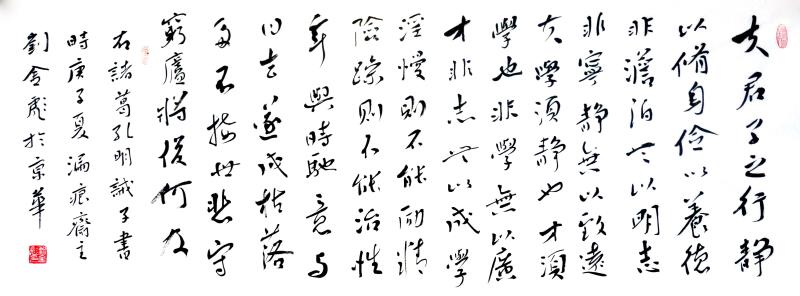 夫君子之行靜
以脩身儉以養德
非澹泊无以明志
非寧靜無以致遠
夫學須靜也才須
學也非學無以廣
才非志无以成學
淫慢則不能勵精
險躁則不能治性
年與時馳意与
日去遂成枯落
多不接世悲守
窮廬將復何及
右諸葛孔明誡子書
時庚子夏漏痕齋主
劉彪於京華